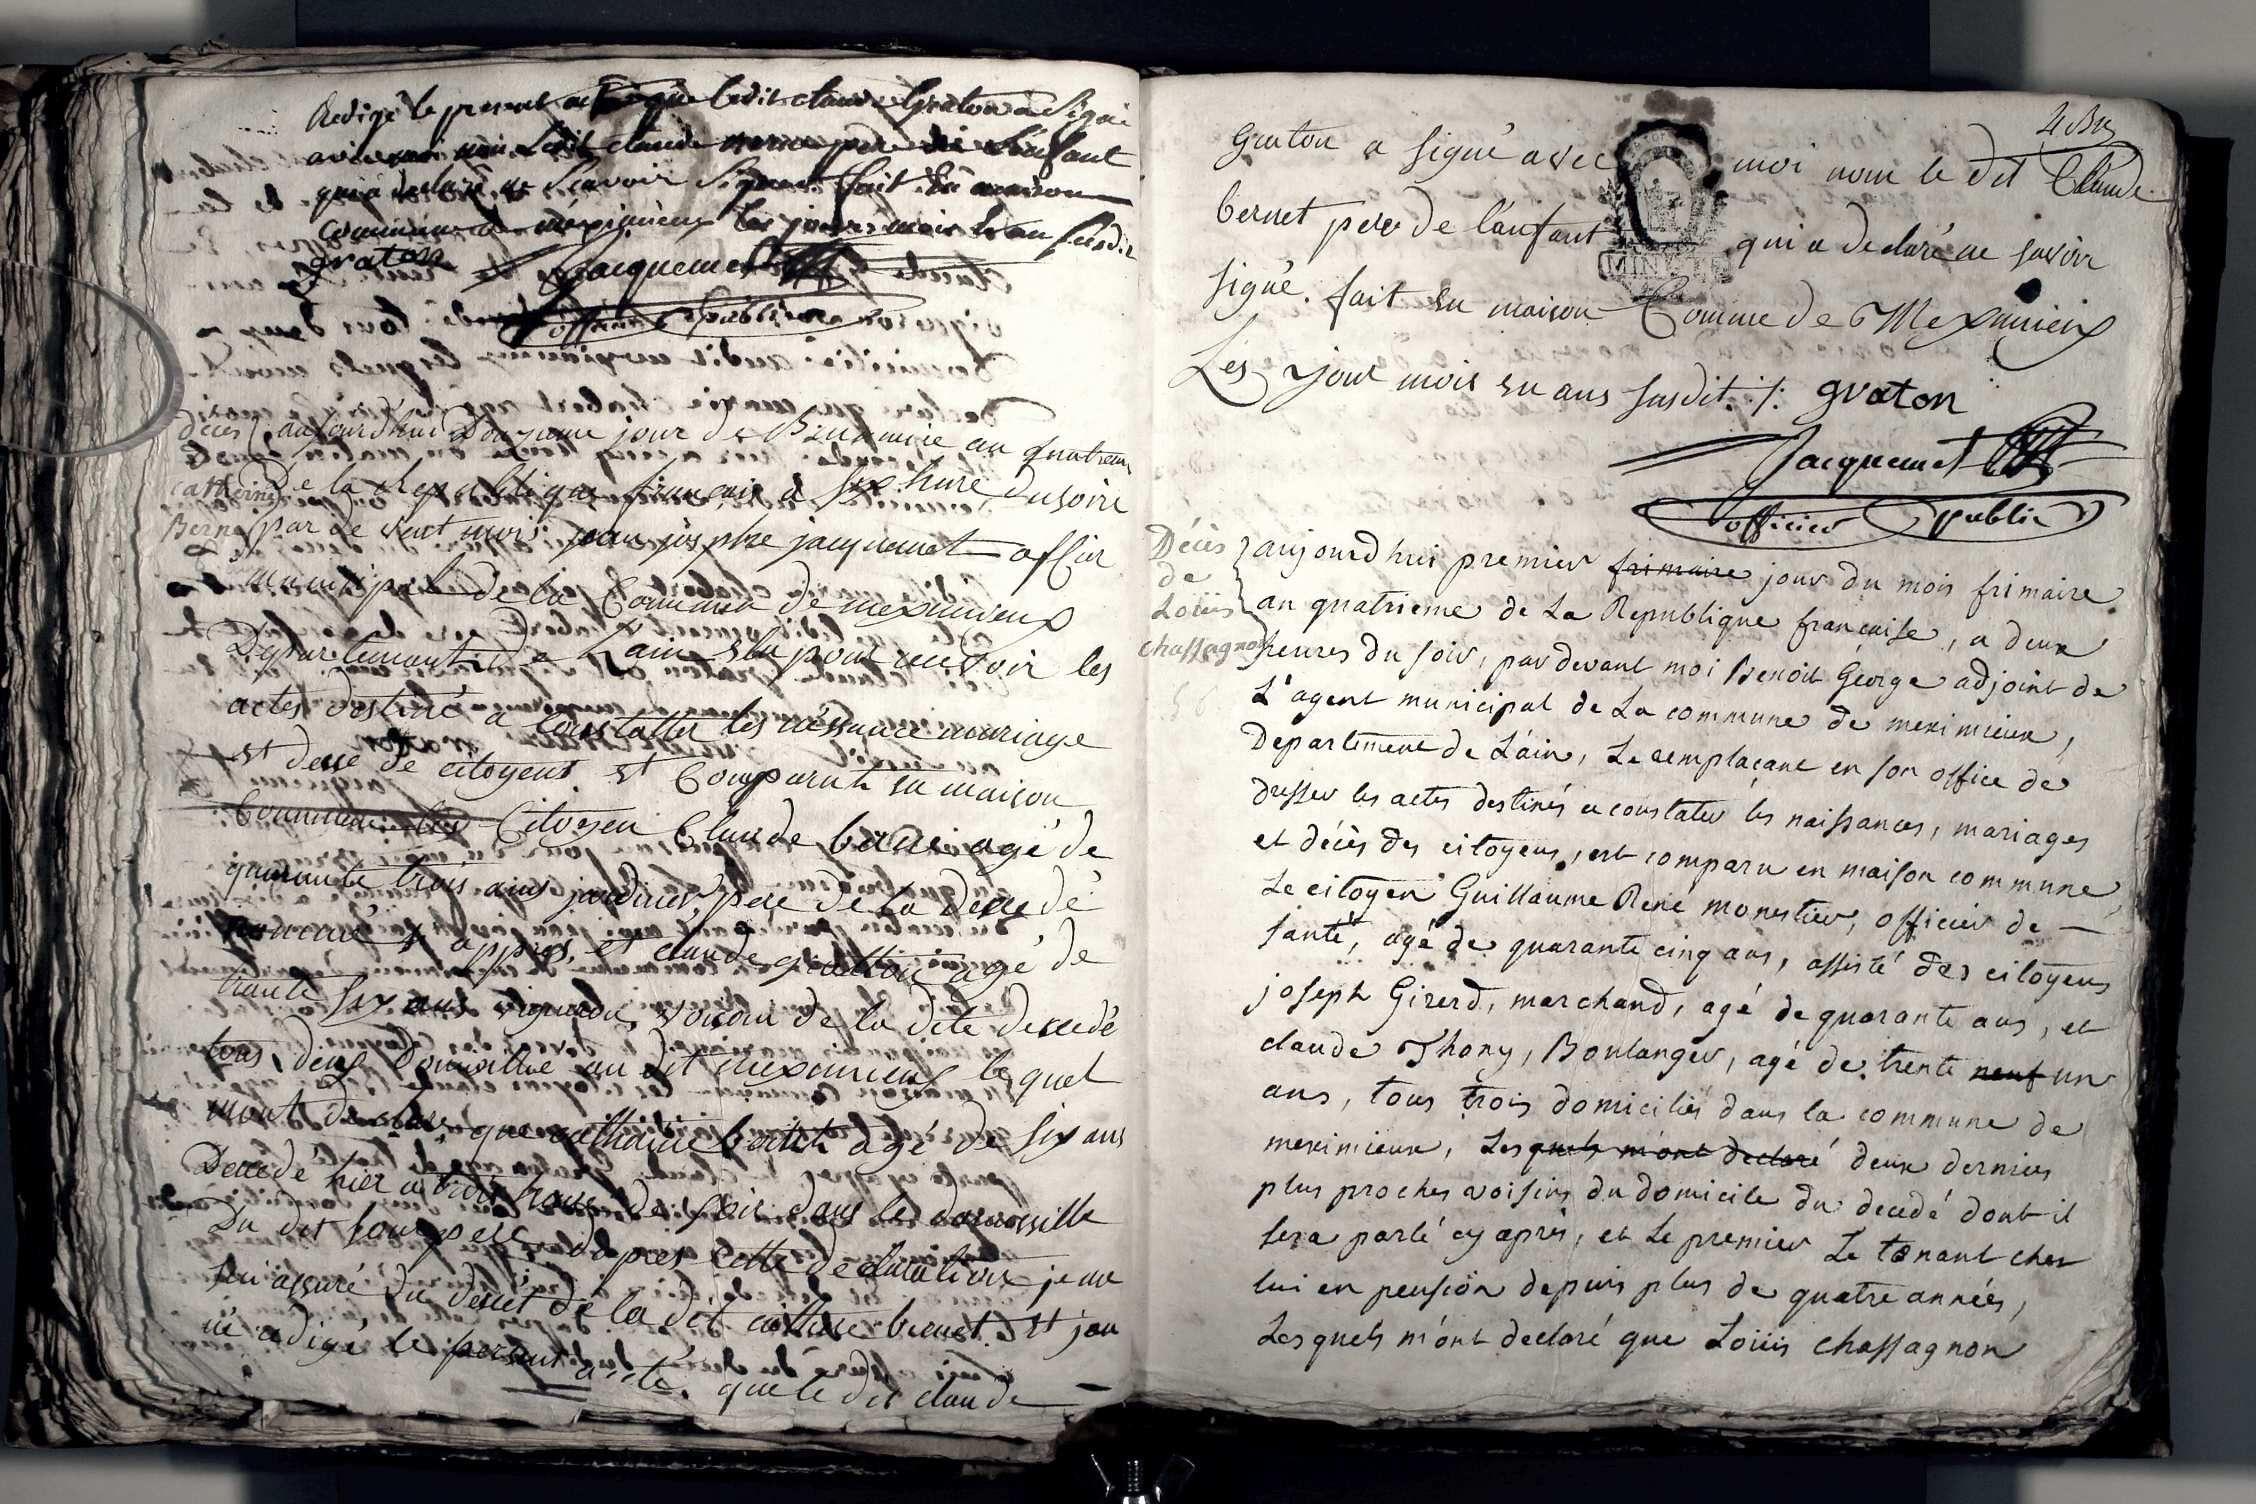 Redigé le present acte que ledit claude Graton a Signé
avec moi non Ledit claude pere de L'enfant
qui a declaré ne Scavoir Signer fait En maison
Commune de mexsimieux les jours mois et an susdit
graton Jacquemet
officier Public
décès aujourdhui Douzieme jour de Brumaire an quatrieme
catherine De la Republique françois a six hure du soire
Berne par de vant moi jean josphe jacquemet offier
municipal de la Commun de meximieux
Departement de Lain elu pour recevoir les
actes destiné a Constatter les nessance mariage
et desse de citoyent et Comparut en maison
Commune les Citoyen Claude berne agé de
quarante trois ans jardinier pere de la decedé
nommé si appres, et claude gratton agé de
trante six ans vigneron voisin de la dite decedé
tous deux Domicillié au dit meximieux lequel
mont declare que catherine bernet agé de six ans
Decedé hier a trois heure de soir dans le domissille
Du dit son pere dapres cette declaration je me
sui assuré du decet de la dit catherine bernet et jan
né rédigé le persent acte. que le dit claude
4 Bis
Graton a signé avec moi nom le dit Claude
bernet pere de l'anfant qui a declaré ne savoir
MINUTE
signé. fait en maison Commune de Meximieux
Les jour mois en ans susdit ./. graton
Jacquemet
officier public
Décès aujourdhui premier frimaire jour du mois frimaire
de
Loüis an quatrieme de La Republique française, a deux
chassagnon heures du soir, par devant moi Benoit George adjoint de
56 L'agent municipal de La commune de meximieux,
Departement de L'ain, Le remplaçant en son office de
dresser les actes destinés a constater les naissances, mariages
et décès des citoyens, est comparu en maison commune
Le citoyen Guillaume René monestier, officier de
santé, agé de quarante cinq ans, assisté des citoyens
joseph Girerd, marchand, agé de quarante ans, et
claude Thony, Boulanger, agé de trente neuf un
ans, tous trois domiciliés dans la commune de
meximieux, Lesquels m'ont declaré deux derniers
plus proches voisins du domicile du decedé dont il
sera parlé cy après, et Le premier Le tenant chez
lui en pension depuis plus de quatre années,
Lesquels m'ont declaré que Loüis chassagnon